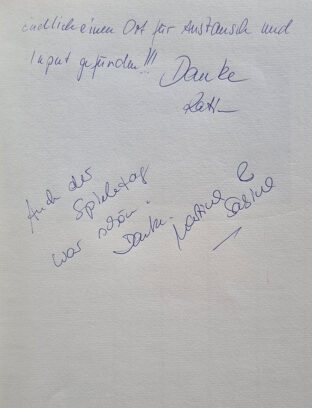 endlich einen Ort für Austausch und
Input gefunden!!!
Danke
Auch der
Spieletag
war schön!
Danke. Martina &
Sabine